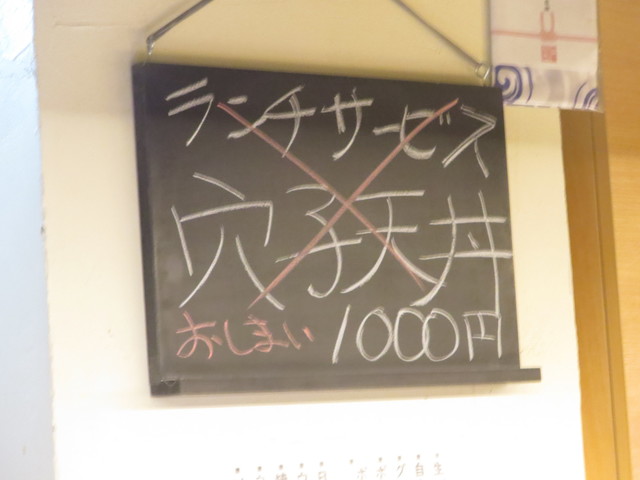 ランチサービス
穴子天丼
おしまい 1000円